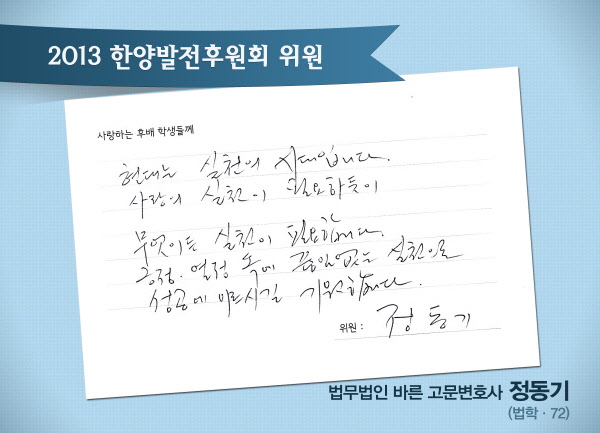 2013 한양발전후원회 위원
사랑하는 후배 학생들께
현대는 실천의 시대입니다.
사랑의 실천이 필요하듯이
무엇이든 실천이 필요합니다.
긍정·열정 속에 끊임없는 실천으로
성공에 이르시길 기원합니다.
위원 : 정동기
법무법인 바른 고문변호사 정동기
(법학 · 72)